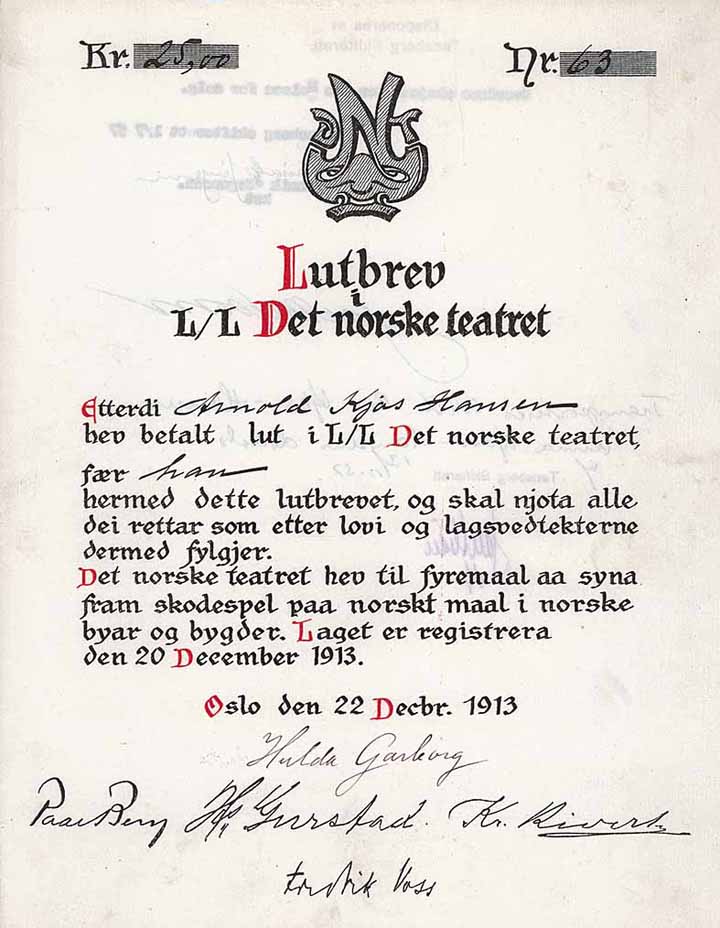 Kr. 25,00
Nr. 63
N
Lutbrev
i
L/L Det norske teatret
Etterdi Arnold Kjøs Hansen
hev betalt lut i L/L Det norske teatret,
fær han
hermed dette lutbrevet, og skal njota alle
dei rettar som etter lovi og lagsvedtekterne
dermed fylgjer.
Det norske teatret hev til fyremaal aa syna
fram skodespel paa norskt maal i norske
byar og bygder. Laget er registrera
den 20 December 1913.
Oslo den 22 Decbr. 1913
Hulda Garborg
Paal Berg Gurstad. Kr.
Fredrik Voss